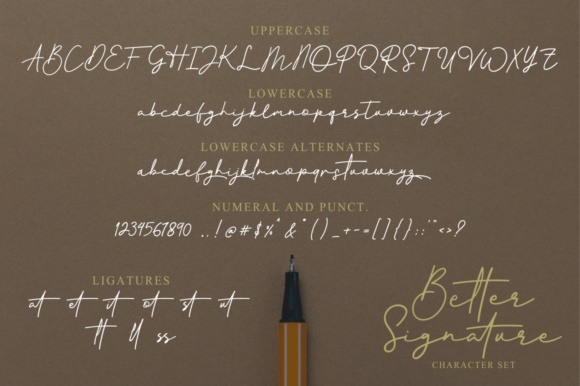 UPPERCASE
ABCDEFGHIJKLMNOPQRSTUVWXYZ
LOWERCASE
abcdefghijklmnopqrstuvwxyz
LOWERCASE ALTERNATES
abcdefghijklmnopqrstuvwxyz
NUMERAL AND PUNCT.
1234567890 .,!@#$%^&*()_+-=[]{}:;'"<>?
LIGATURES
at et it ot st ut
tt ll ss
Better
Signature
CHARACTER SET